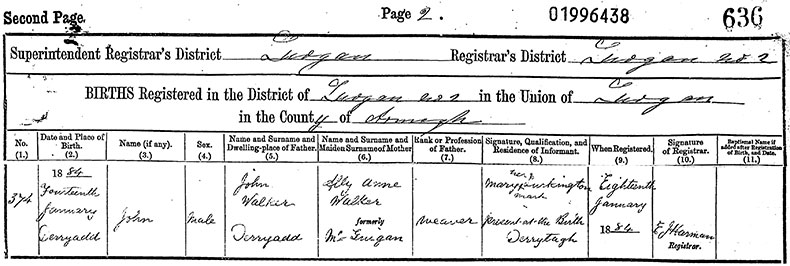 Second Page. Page 2. 01996438 636
Superintendent Registrar's District Lurgan Registrar's District Lurgan No 2
BIRTHS Registered in the District of Lurgan No 2 in the Union of Lurgan
in the County of Armagh
No. (1.) Date and Place of Birth. (2.) Name (if any). (3.) Sex. (4.) Name and Surname and Dwelling-place of Father. (5.) Name and Surname and Maiden Surname of Mother (6.) Rank or Profession of Father. (7.) Signature, Qualification, and Residence of Informant. (8.) When Registered. (9.) Signature of Registrar. (10.) Baptismal Name if added after Registration of Birth, and Date. (11.)
374
1884
Fourteenth
January
Derryadd
John
Male
John
Walker
Derryadd
Anne
Walker
formerly
McGuigan
Weaver
her x
Mary
mark
present at the Birth
Derrytagh
Eighteenth
January
1884
Harman
Registrar.